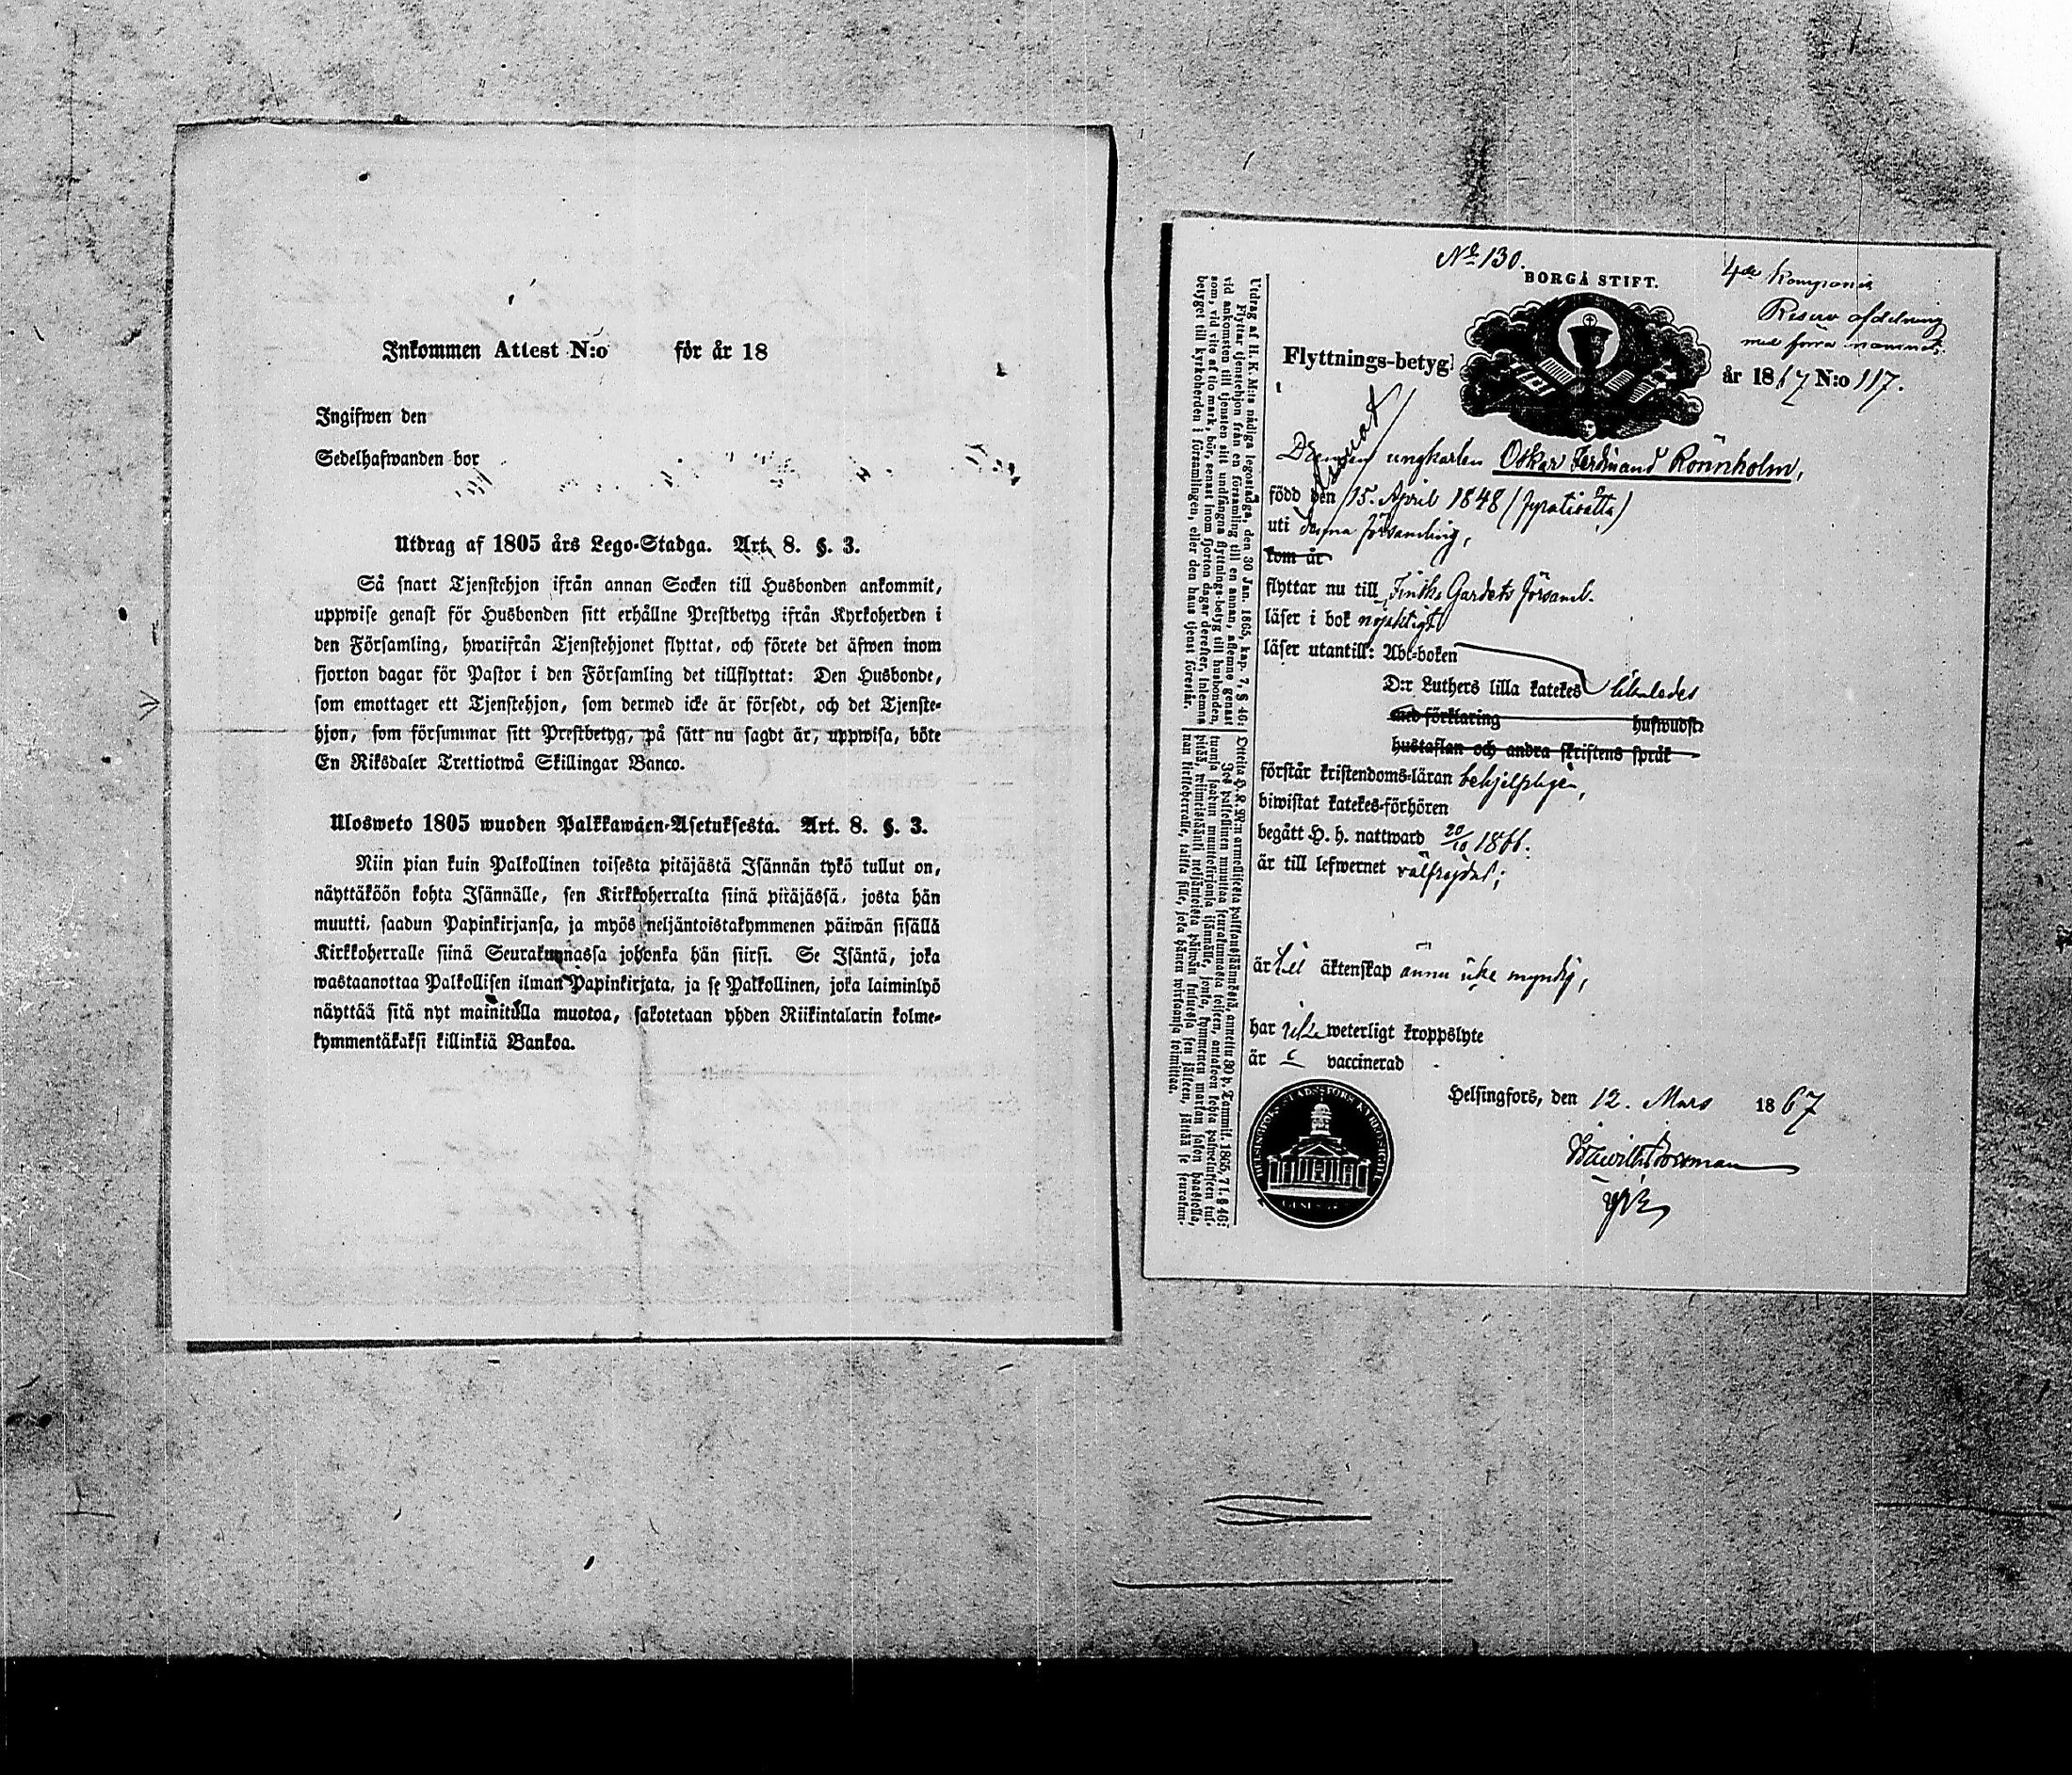 Inkommen Attest N:o för år 18
Ingifwen den
Sedelhafwanden bor
Utdrag af 1805 års Lego-Stadga. Art. 8. §. 3.
Så snart Tjenstehjon ifrån annan Socken till Husbonden ankommit,
uppwise genast för Husbonden sitt erhållne Prestbetyg ifrån Kyrkoherden i
den Församling, hwarifrån Tjenstehjonet flyttat, och förete det äfwen inom
fjorton dagar för Pastor i den Församling det tillflyttat: Den Husbonde,
som emottager ett Tjenstehjon, som dermed icke är försedt, och det Tjenste-
hjon, som försummar sitt Prestbetyg, på sätt nu sagdt är, uppwisa, böte
En Riksdaler Trettiotwå Skillingar Banco.
Ulosweto 1805 wuoden Palkkawäen-Asetuksesta. Art. 8. §. 3.
Niin pian kuin Palkollinen toisesta pitäjästä Isännän tykö tullut on,
näyttäköön kohta Isännälle, sen Kirkkoherralta siinä pitäjässä, josta hän
muutti, saadun Papinkirjansa, ja myös neljäntoistakymmenen päiwän sisällä
Kirkkoherralle siinä Seurakunnassa johonka hän siirsi. Se Isäntä, joka
wastaanottaa Palkollisen ilman Papinkirjata, ja se Palkollinen, joka laiminlyö
näyttää sitä nyt mainitulla muotoa, sakotetaan yhden Riikintalarin kolme-
kymmentäkaksi killinkiä Bankoa.
Nº 130.
BORGÅ STIFT.
4de Kompanie
Reserv afdelning
med förra namnet.
Flyttnings-betyg
år 1867 N:o 117.
ungkarlen Oskar Ferdinand Rönnholm,
född den 15. April 1848
uti denna församling,
kom år
flyttar nu till Finska Gardets Församl.
läser i bok nöjaktigt
läser utantill: Abc-boken
D:r Luthers lilla katekes likaledes
med förklaring hufwudst.
hustaflan och andra skriftens språk
förstår kristendoms-läran behjelpligen,
biwistat katekes-förhören
begått H. h. nattward 20/10 1866.
är till lefwernet välfrejdad;
är till äktenskap ännu icke myndig,
har icke weterligt kroppslyte
är vaccinerad
Helsingfors, den 12. Mars 1867
Utdrag af H. K. M:ts nådiga legostadga, den 30 Jan. 1865, kap. 7, § 46:
Flyttar tjenstehjon från en församling till en annan, aflemne genast
vid ankomsten till tjensten sitt undfångna flyttnings-betyg till husbonden,
som, vid vite af tio mark, bör, senast inom fjorton dagar derefter, inlemna
betyget till kyrkoherden i församlingen, eller den hans tjenst förestår.